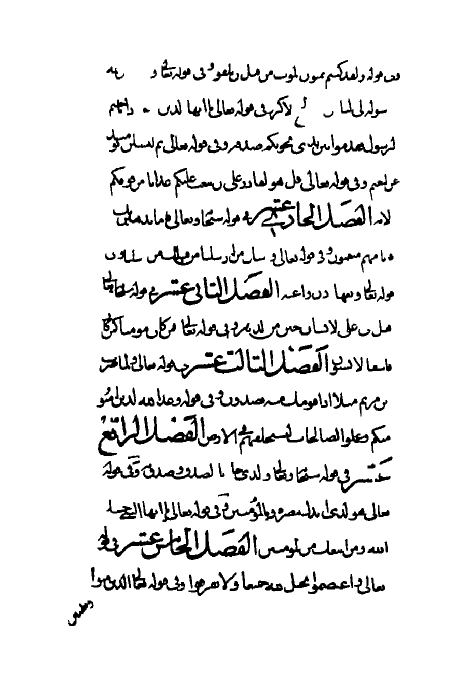 قوله ولقد كنتم تمنون الموت من قبل ان تلقوه وفي قوله تعالى و
في قوله تعالى يا ايها الذين
الرسول فقدموا بين يدي نجواكم صدقه وفي قوله تعالى ثم لتسئلن يومئذ
عن النعيم وفي قوله تعالى قل هو القادر على ان يبعث عليكم عذابا من فوقكم
الايه الفصل الحادي عشر في قوله سبحانه وتعالى فاما نذهبن بك
فانا منهم منتقمون وفي قوله تعالى وسئل من ارسلنا من قبلك من رسلنا وفي
قوله تعالى وتعيها اذن واعيه الفصل الثاني عشر في قوله سبحانه وتعالى
هل اتى على الانسان حين من الدهر وفي قوله تعالى افمن كان مومنا كمن كان
فاسقا لا يستوون الفصل الثالث عشر في قوله تعالى ولما ضرب
بن مريم مثلا اذا قومك منه يصدون وفي قوله وعد الله الذين امنوا
منكم وعملوا الصالحات ليستخلفنهم في الارض الفصل الرابع
عشر في قوله سبحانه وتعالى والذي جاء بالصدق وصدق به وفي قوله
تعالى هو الذي ايدك بنصره وبالمؤمنين وفي قوله تعالى يا ايها النبي حسبك
الله ومن اتبعك من المومنين الفصل الخامس عشر في قوله
تعالى واعتصموا بحبل الله جميعا ولا تفرقوا وفي قوله تعالى الذين امنوا
وتطمئن